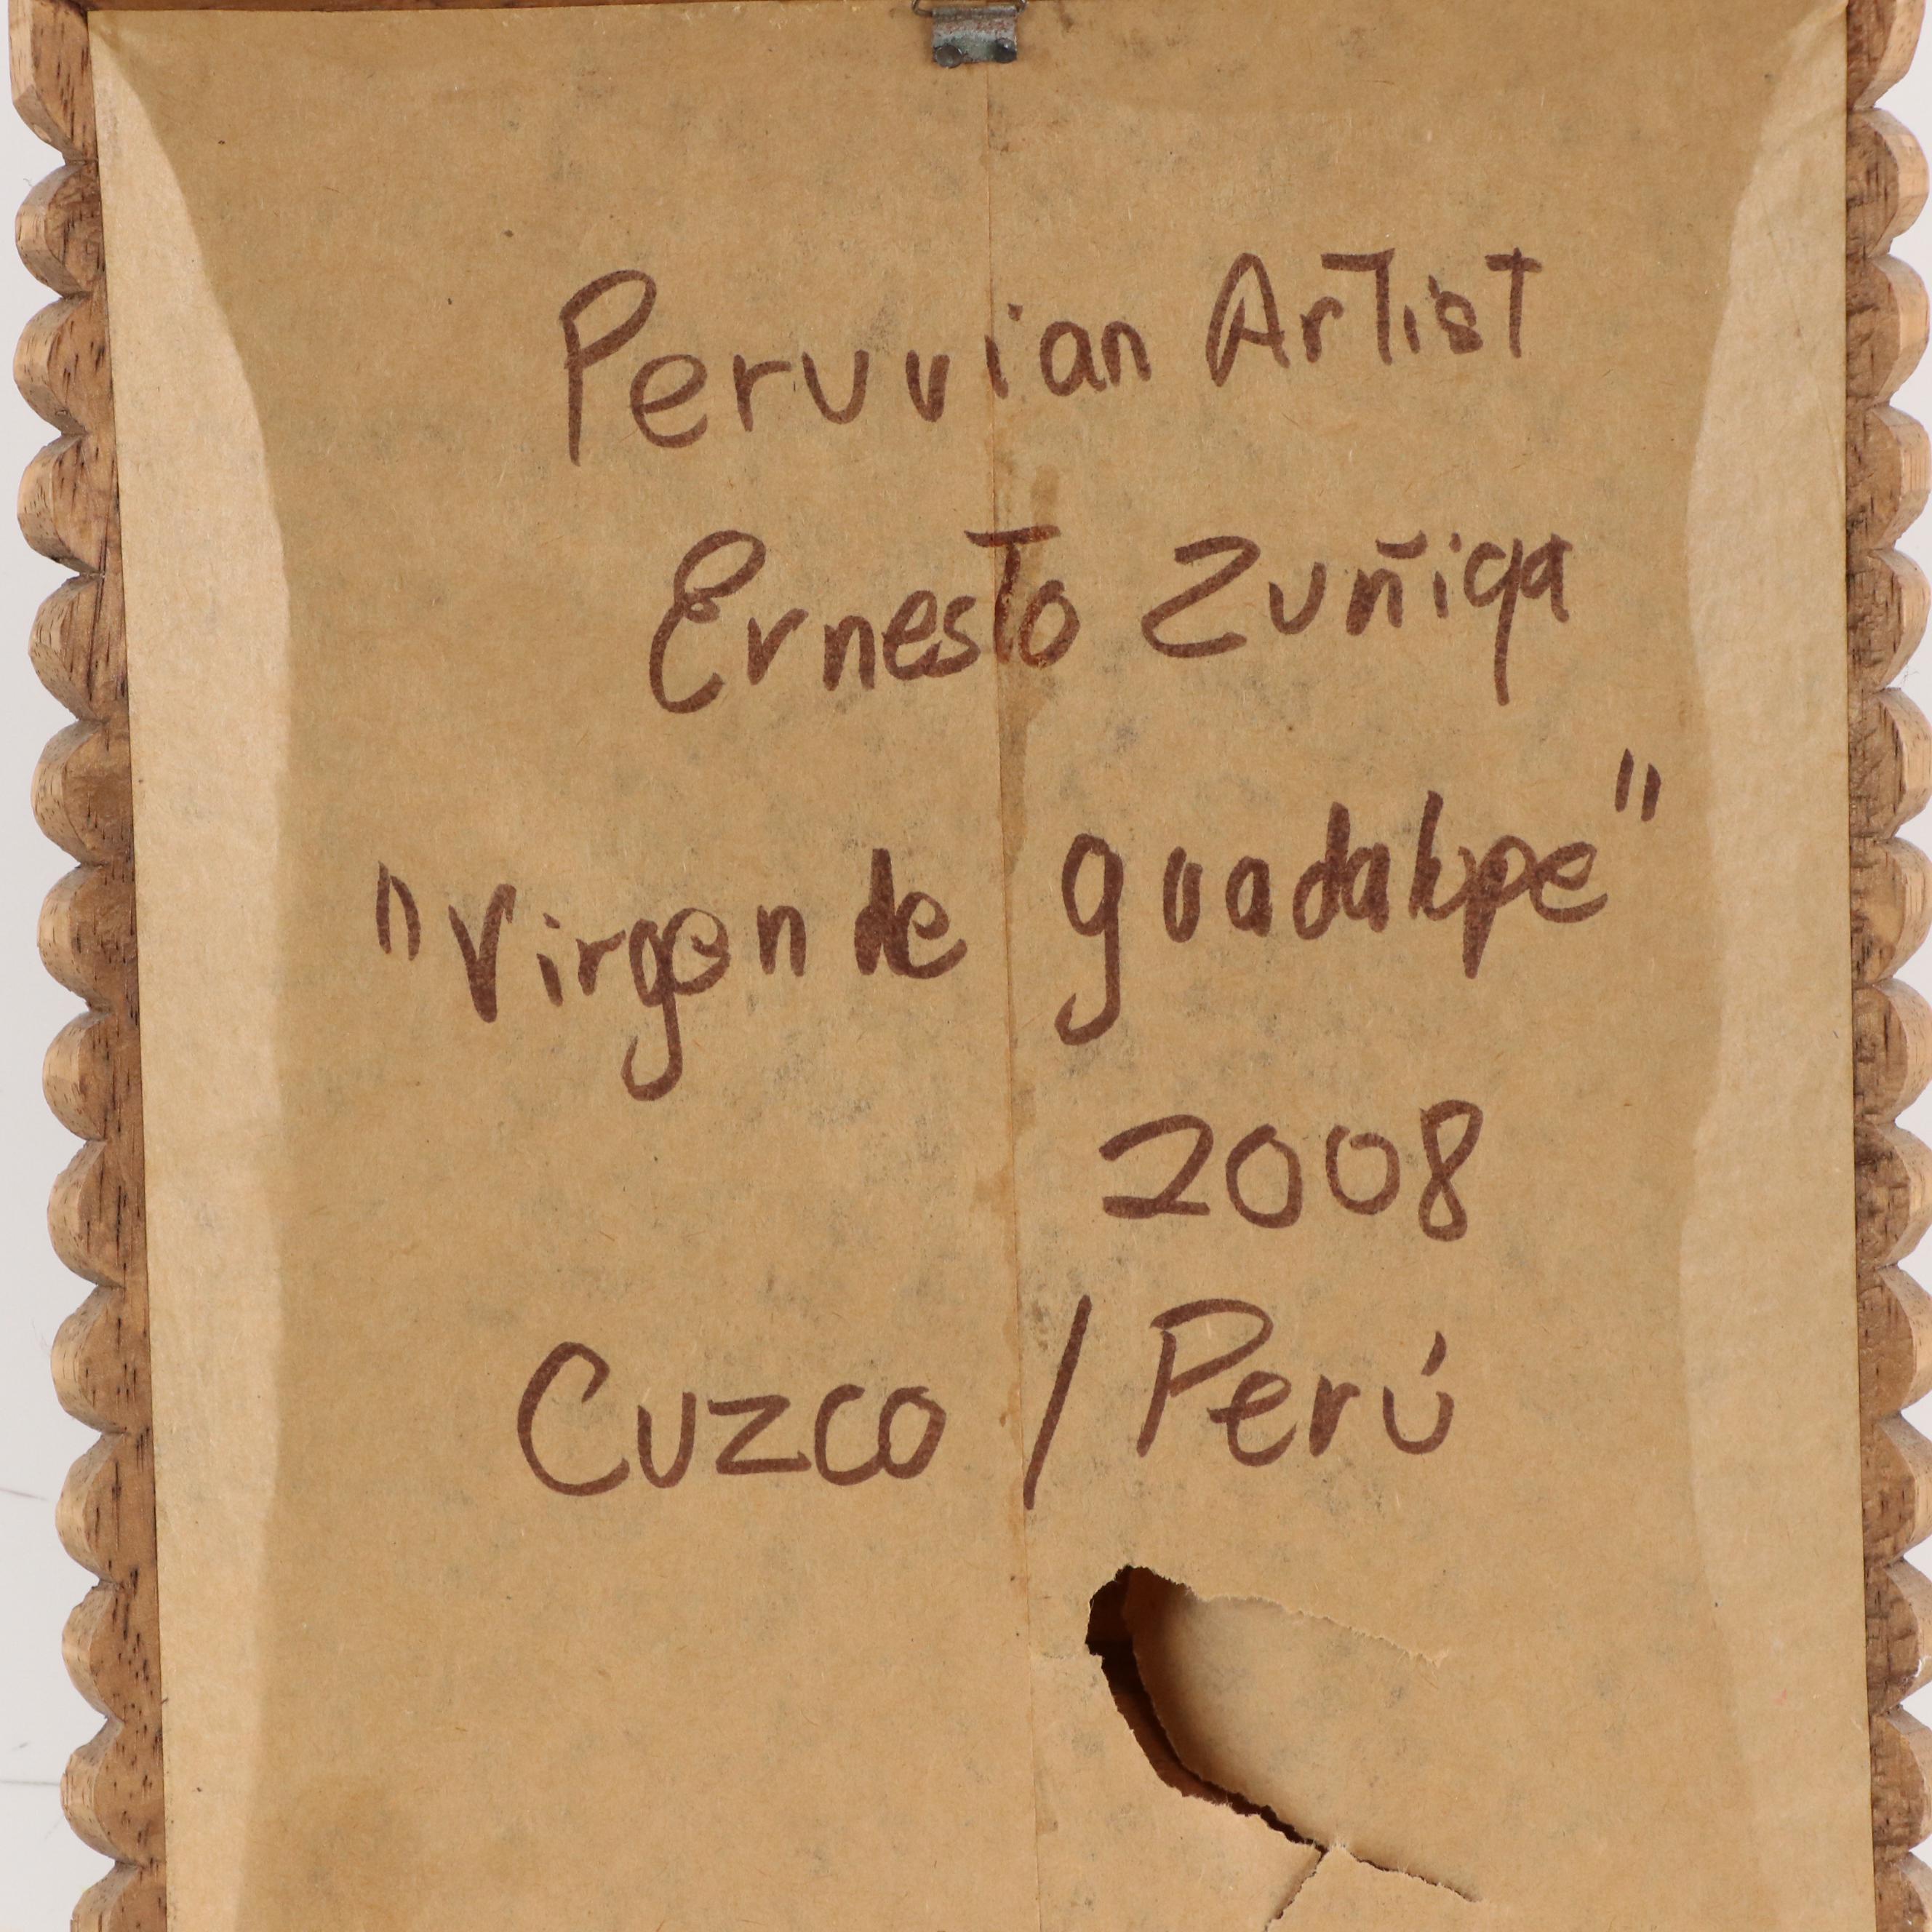 Peruvian Artist
Ernesto Zuñiga
"Virgen de guadalupe"
2008
Cuzco / Perú